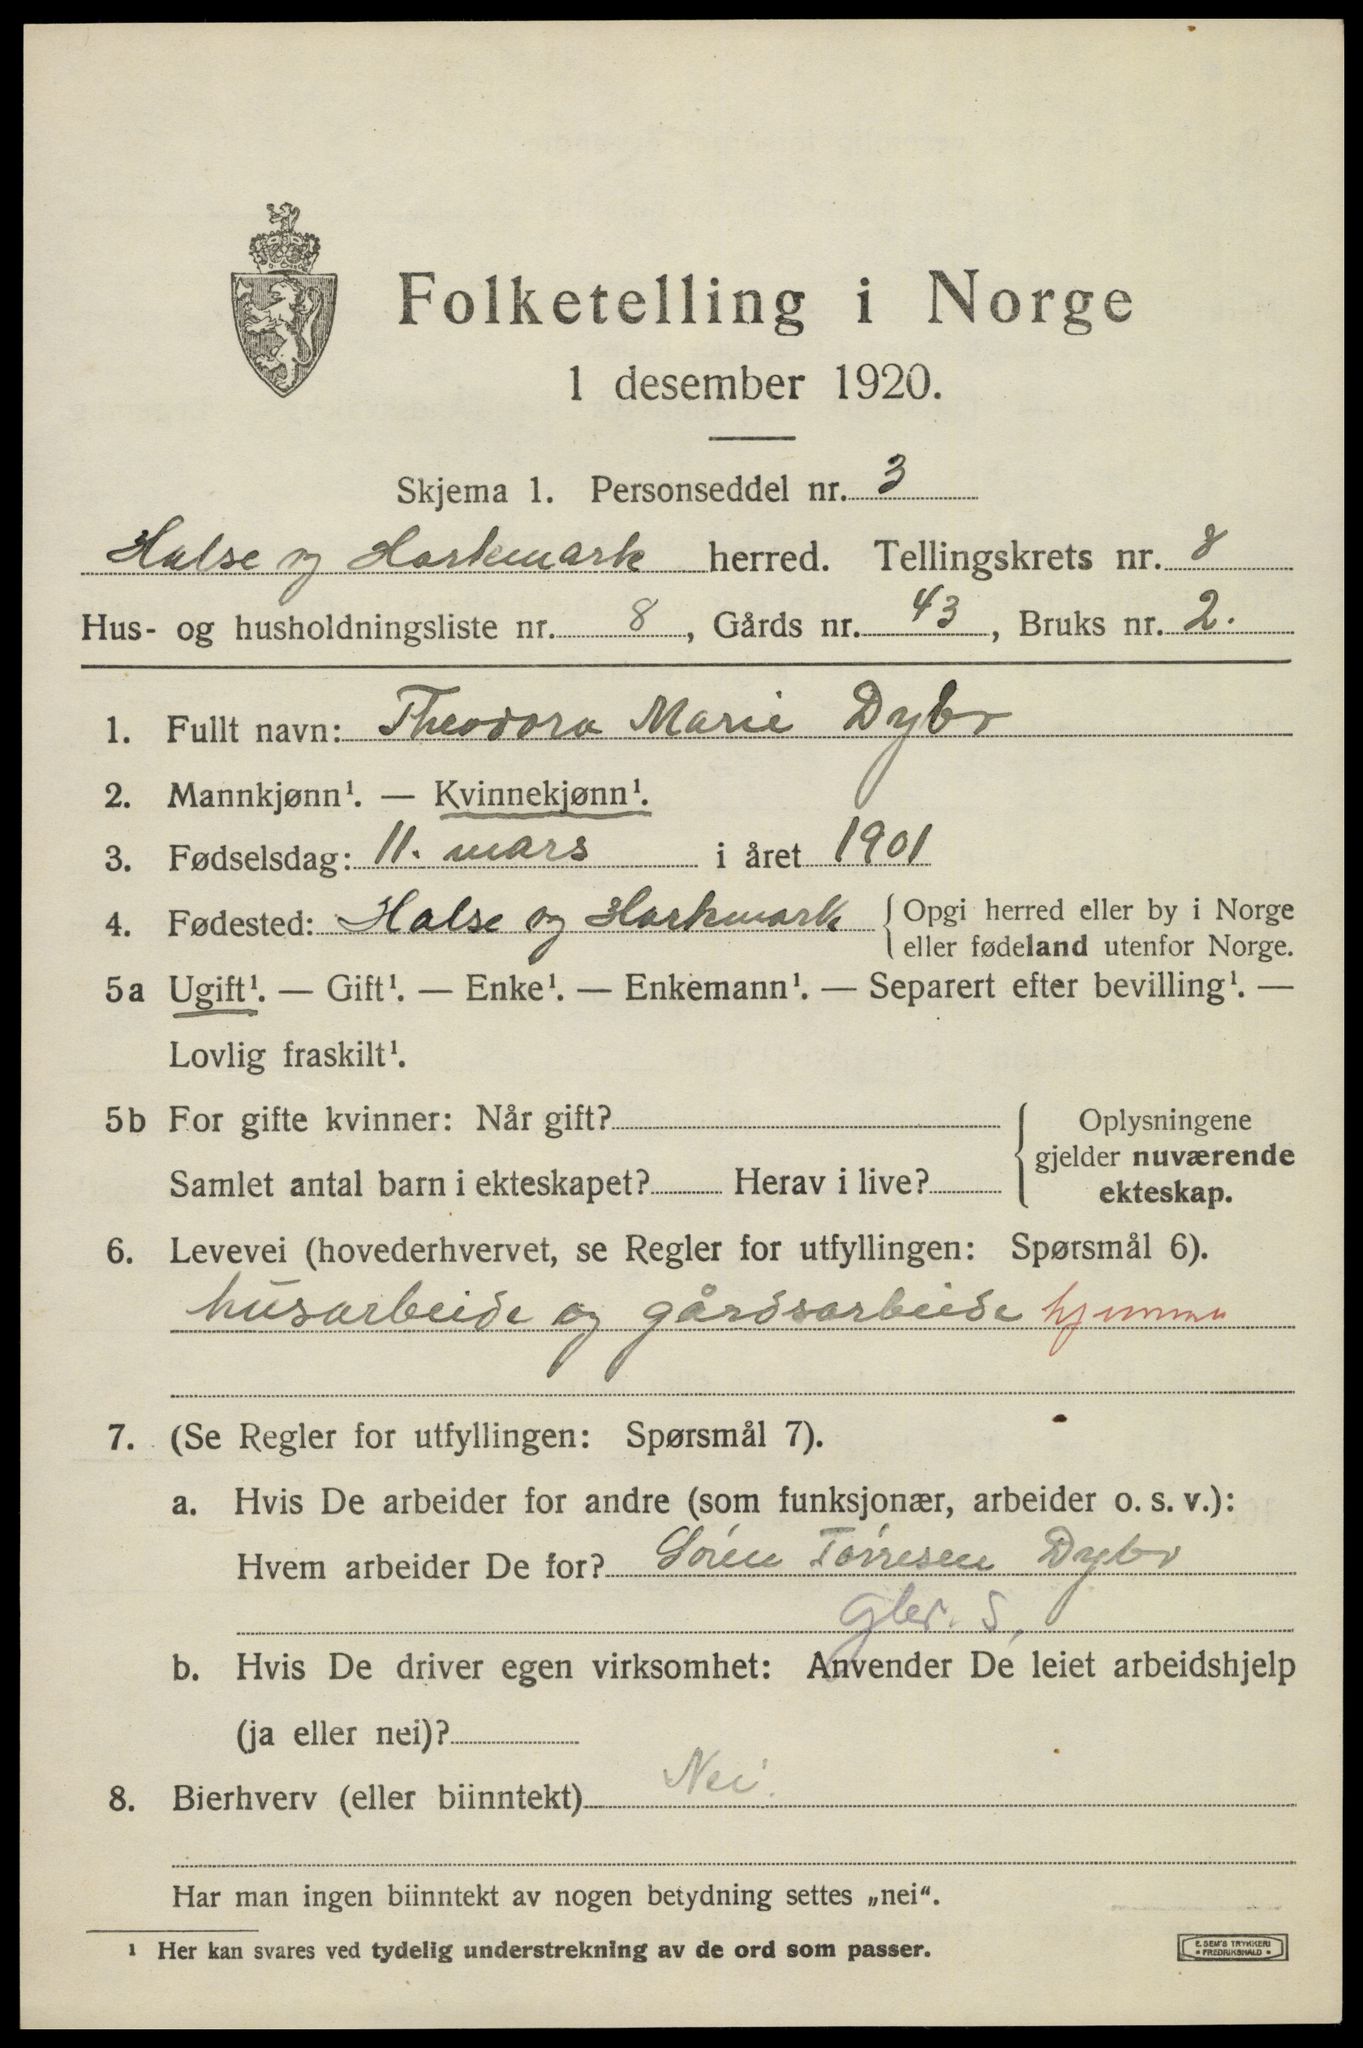 Folketelling i Norge
1 desember 1920.
Skjema 1. Personseddel nr. 3
Halse og Harkmark herred. Tellingskrets nr. 8
Hus- og husholdningsliste nr. 8, Gårds nr. 43, Bruks nr. 2.
1. Fullt navn: Theodora Marie Dybo
2. Mannkjønn¹. — Kvinnekjønn¹.
3. Fødselsdag: 11. mars i året 1901
4. Fødested: Halse og Harkmark {Opgi herred eller by i Norge
eller fødeland utenfor Norge.
5a Ugift¹. — Gift¹. — Enke¹. — Enkemann¹. — Separert efter bevilling¹. —
Lovlig fraskilt¹.
5b For gifte kvinner: Når gift?
Samlet antal barn i ekteskapet? Herav i live?
{Oplysningene
gjelder nuværende
ekteskap.
6. Levevei (hovederhvervet, se Regler for utfyllingen: Spørsmål 6).
husarbeide og gårdsarbeide hjemme
7. (Se Regler for utfyllingen: Spørsmål 7).
a. Hvis De arbeider for andre (som funksjonær, arbeider o. s. v.):
Hvem arbeider De for? Sören Törresen Dybo
gbr. S,
b. Hvis De driver egen virksomhet: Anvender De leiet arbeidshjelp
(ja eller nei)?
8. Bierhverv (eller biinntekt) Nei.
Har man ingen biinntekt av nogen betydning settes „nei“.
¹ Her kan svares ved tydelig understrekning av de ord som passer.
E. SEM'S TRYKKERI
FREDRIKSHALD